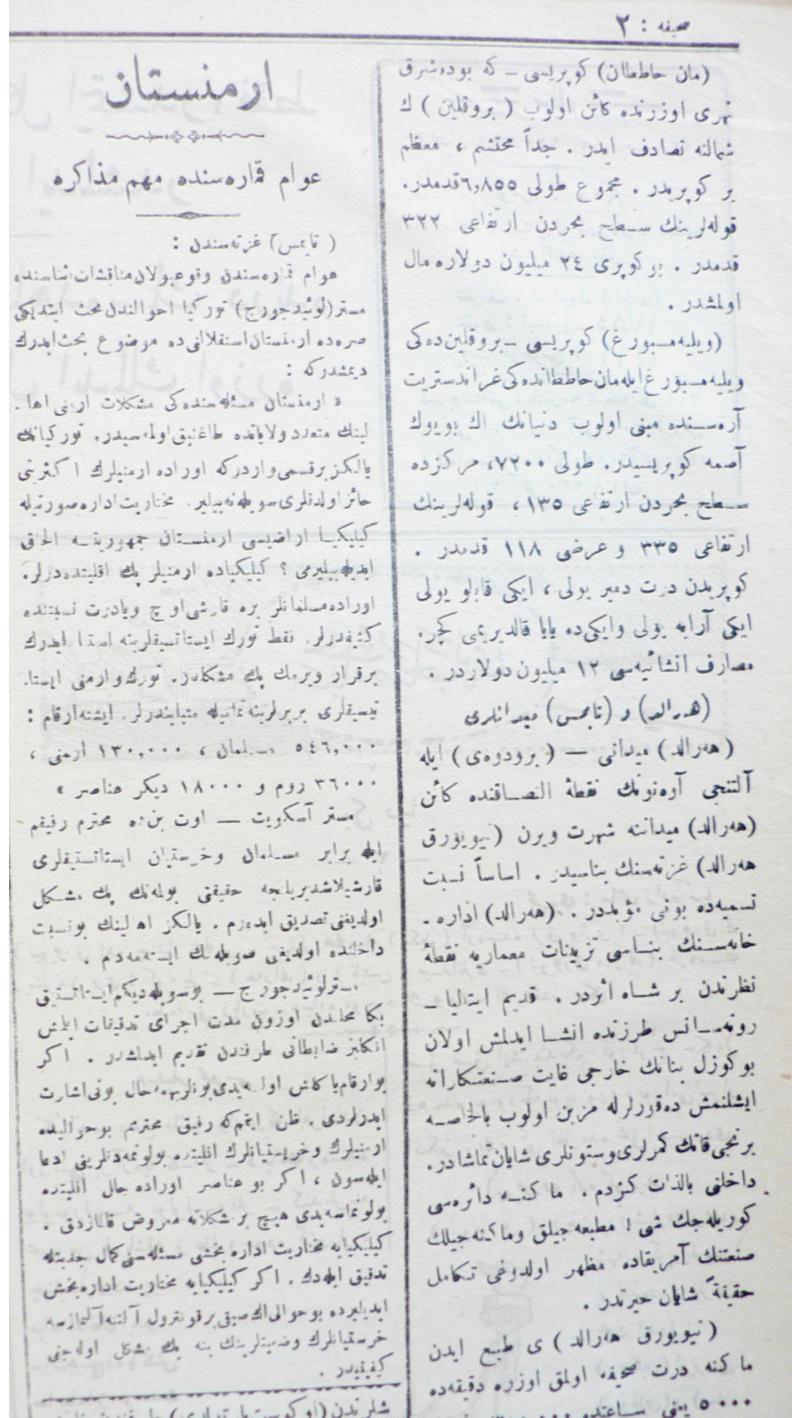 صحیفه : ٢
(مان حاططان) کوپریسی ـ که بوده شرق
نهری اوزرنده کائن اولوب ( بروقلین ) ك
شمالنه تصادف ایدر . جداً محتشم ، معظم
بر کوپریدر . مجموع طولی ٦,٨٥٥ قدمدر .
قوله‌لرینك سـطح بحردن ارتفاعی ٣٢٢
قدمدر . بو کوپری ٢٤ میلیون دولاره مال
اولمشدر .
(ویلیه‌مسبورغ) کوپریسی ـ بروقلین‌ده‌کی
ویلیه‌مسبورغ ایله مان حاططانده‌کی غراندستریت
آره‌سـنده مبنی اولوب دنیانك اك بویوك
آصمه کوپریسیدر. طولی ٧٢٠٠ ، مرکزده
سـطح بحردن ارتفاعی ١٣٥ ، قوله‌لرینك
ارتفاعی ٣٣٥ و عرضی ١١٨ قدمدر .
کوپریدن درت دمیر یولی ، ایکی قابلو یولی
ایکی آرابه یولی وایکی‌ده یایا قالدیریمی کچر.
مصارف انشائیه‌سی ١٢ میلیون دولاردر .
(هه‌رالد) و (تایمس) میدانلری
(هه‌رالد) میدانی — (برودوه‌ی) ایله
آلتنجی آوه‌نونك نقطهٔ التصـاقنده کائن
(هه‌رالد) میداننه شهرت ویرن (نیویورق
هه‌رالد) غزته‌سنك بناسیدر . اساساً نسبت
تسمیه‌ده بونی مؤیددر . (هه‌رالد) اداره ـ
خانه‌سـنك بنـاسی تزیینات معماریه نقطهٔ
نظرندن بر شـاه اثردر . قدیم ایتالیا ـ
رونه‌سـانس طرزنده انشـا ایدلمش اولان
بوکوزل بنانك خارجی غایت صـنعتکارانه
ایشلنمش ده‌قورلرله مزین اولوب بالخاصـه
برنجی قاتك کمرلری وستونلری شایان تماشادر.
داخلنی بالذات کزدم . ماکنـه دائره‌سی
کوریله‌جك شی ! مطبعه‌جیلق وماکنه‌جیلك
صنعتنك آمریقاده مظهر اولدوغی تکامل
حقیقةً شایان حیرتدر .
(نیویورق هه‌رالد) ی طبع ایدن
ماکنه درت صحیفه اولمق اوزره دقیقه‌ده
ارمنستان
عوام قماره‌سنده مهم مذاکره
( تایمس) غزته‌سندن :
عوام قماره‌سندن وقوعبولان مناقشات اثناسنده
مستر(لوئید جورج) تورکیا احوالندن بحث ایتدیکی
صره‌ده ارمنستان استقلالنی ده موضوع بحث ایدرك
دیمشدرکه :
« ارمنستان مسئله‌سنده‌کی مشکلات ارمنی اها ـ
لینك متعدد ولایاتده طاغنیق اولمه‌سیدر. تورکیانك
یالکز برقسمی واردرکه اوراده ارمنیلرك اکثریتی
حائز اولدقلری سویله‌نه‌بیلیر. مختاریت اداره صورتیله
کیلیکیـا اراضیسی ارمنستان جمهوریتنـه الحاق
ایدیله‌بیلیرمی ؟ کیلیکیاده ارمنیلر پك اقلیتده‌درلر.
اوراده مسلمانلر بره قارشی اوچ ویادرت نسبتنده
کثیفدرلر. فقط تورك ایستاتستیقلرینه استناد ایدرك
برقرار ویرمك پك مشکلدر. تورك وارمنی ایستا ـ
تیستیقلری بربرلرینه تمامیله متباینـدرلر. ایشته ارقام :
٥٤٦,٠٠٠ مسـلمان ، ١٣٠,٠٠٠ ارمنی ،
٣٦٠٠٠ روم و ١٨٠٠٠ دیکر عناصر »
مستر آسکویت — اوت بن‌ده محترم رفیقم
ایله برابر مسـلمان وخرستیان ایستاتستیقلری
قارشیلاشدیریلنجه حقیقی بولمه‌نك پك مشـکل
اولدیغنی تصدیق ایدەرم . یالکز اهالینك بونسبت
داخلنده اولدیغنی سویله‌مك ایسـته‌مه‌دم .
مسترلوئیدجورج — بوسویله‌دیکم ایستاتستیق
بکا محلندن اوزون مدت اجرای تدقیقات ایتمش
انکلیز ضابطانی طرفندن تقدیم ایدلمشدر . اکر
بوارقام یاکلش اولـه‌یدی بونلر بهمه‌حال بونی اشارت
ایدرلردی . ظن ایتمم که رفیق محترمم بوحوالیده
ارمنیلرك وخرستیانلرك اقلیتده بولونمه‌دقلرینی ادعا
ایله‌سون ، اکر بو عناصر اوراده حال اقلیتده
بولونماسه‌یدی هیچ بر مشکلاته معروض قالمازدق .
کیلیکیایه مختاریت اداره بخشی مسئله‌سنی کمال جدیتله
تدقیق ایله‌دك . اکر کیلیکیایه مختاریت اداره بخش
ایدیلیرده بوحوالی الك صیقی بر قونترول آلتنه آلنمازسه
خرستیانلرك وضعیتلرینك ینه پك مشکل اوله‌جغی
کیفیتیدر .